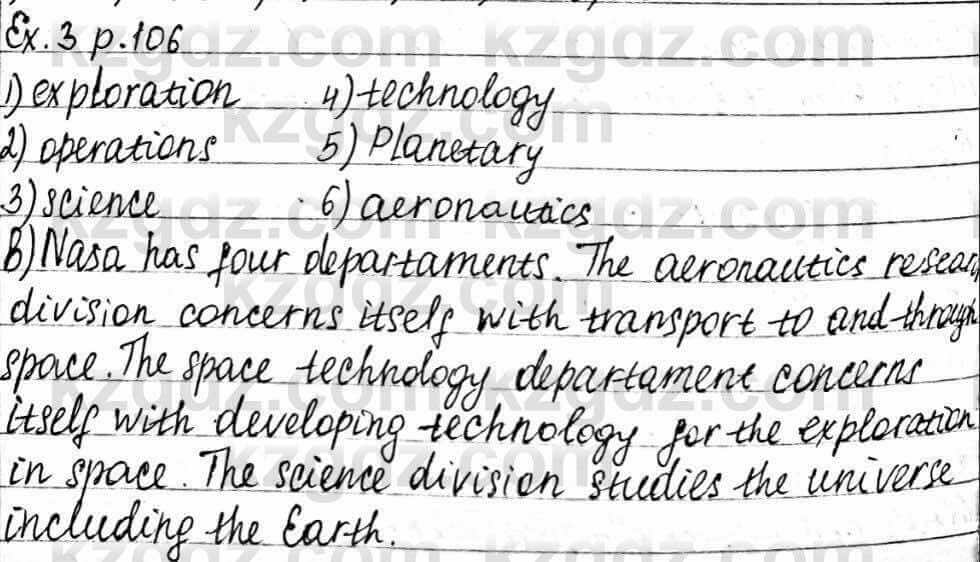 Ex. 3 p. 106
1) exploration 4) technology
2) operations 5) Planetary
3) science 6) aeronautics
B) Nasa has four departaments. The aeronautics resear
division concerns itself with transport to and through
space. The space technology departament concerns
itself with developing technology for the exploration
in space. The science division studies the universe
including the Earth.
kzgdz.com